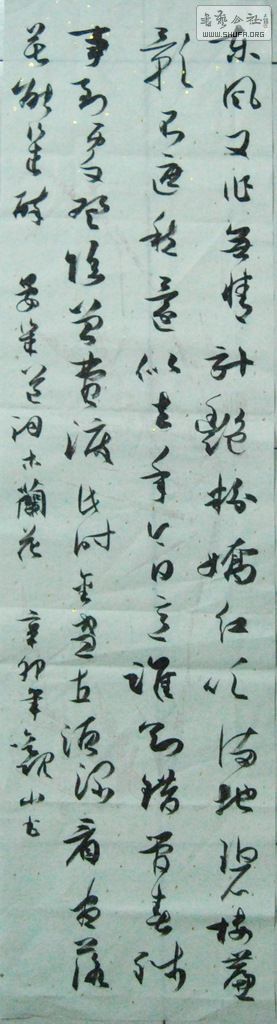 書藝公社
WWW.SHUFA.ORG
東風又作無情計艷粉嬌紅吹滿地碧樓簾
影不遮愁還似去年今日意誰知錯管春殘
事到處登臨曾費淚此時金盞直須深看盡落
花能幾醉 晏幾道詞木蘭花 辛卯年 山書